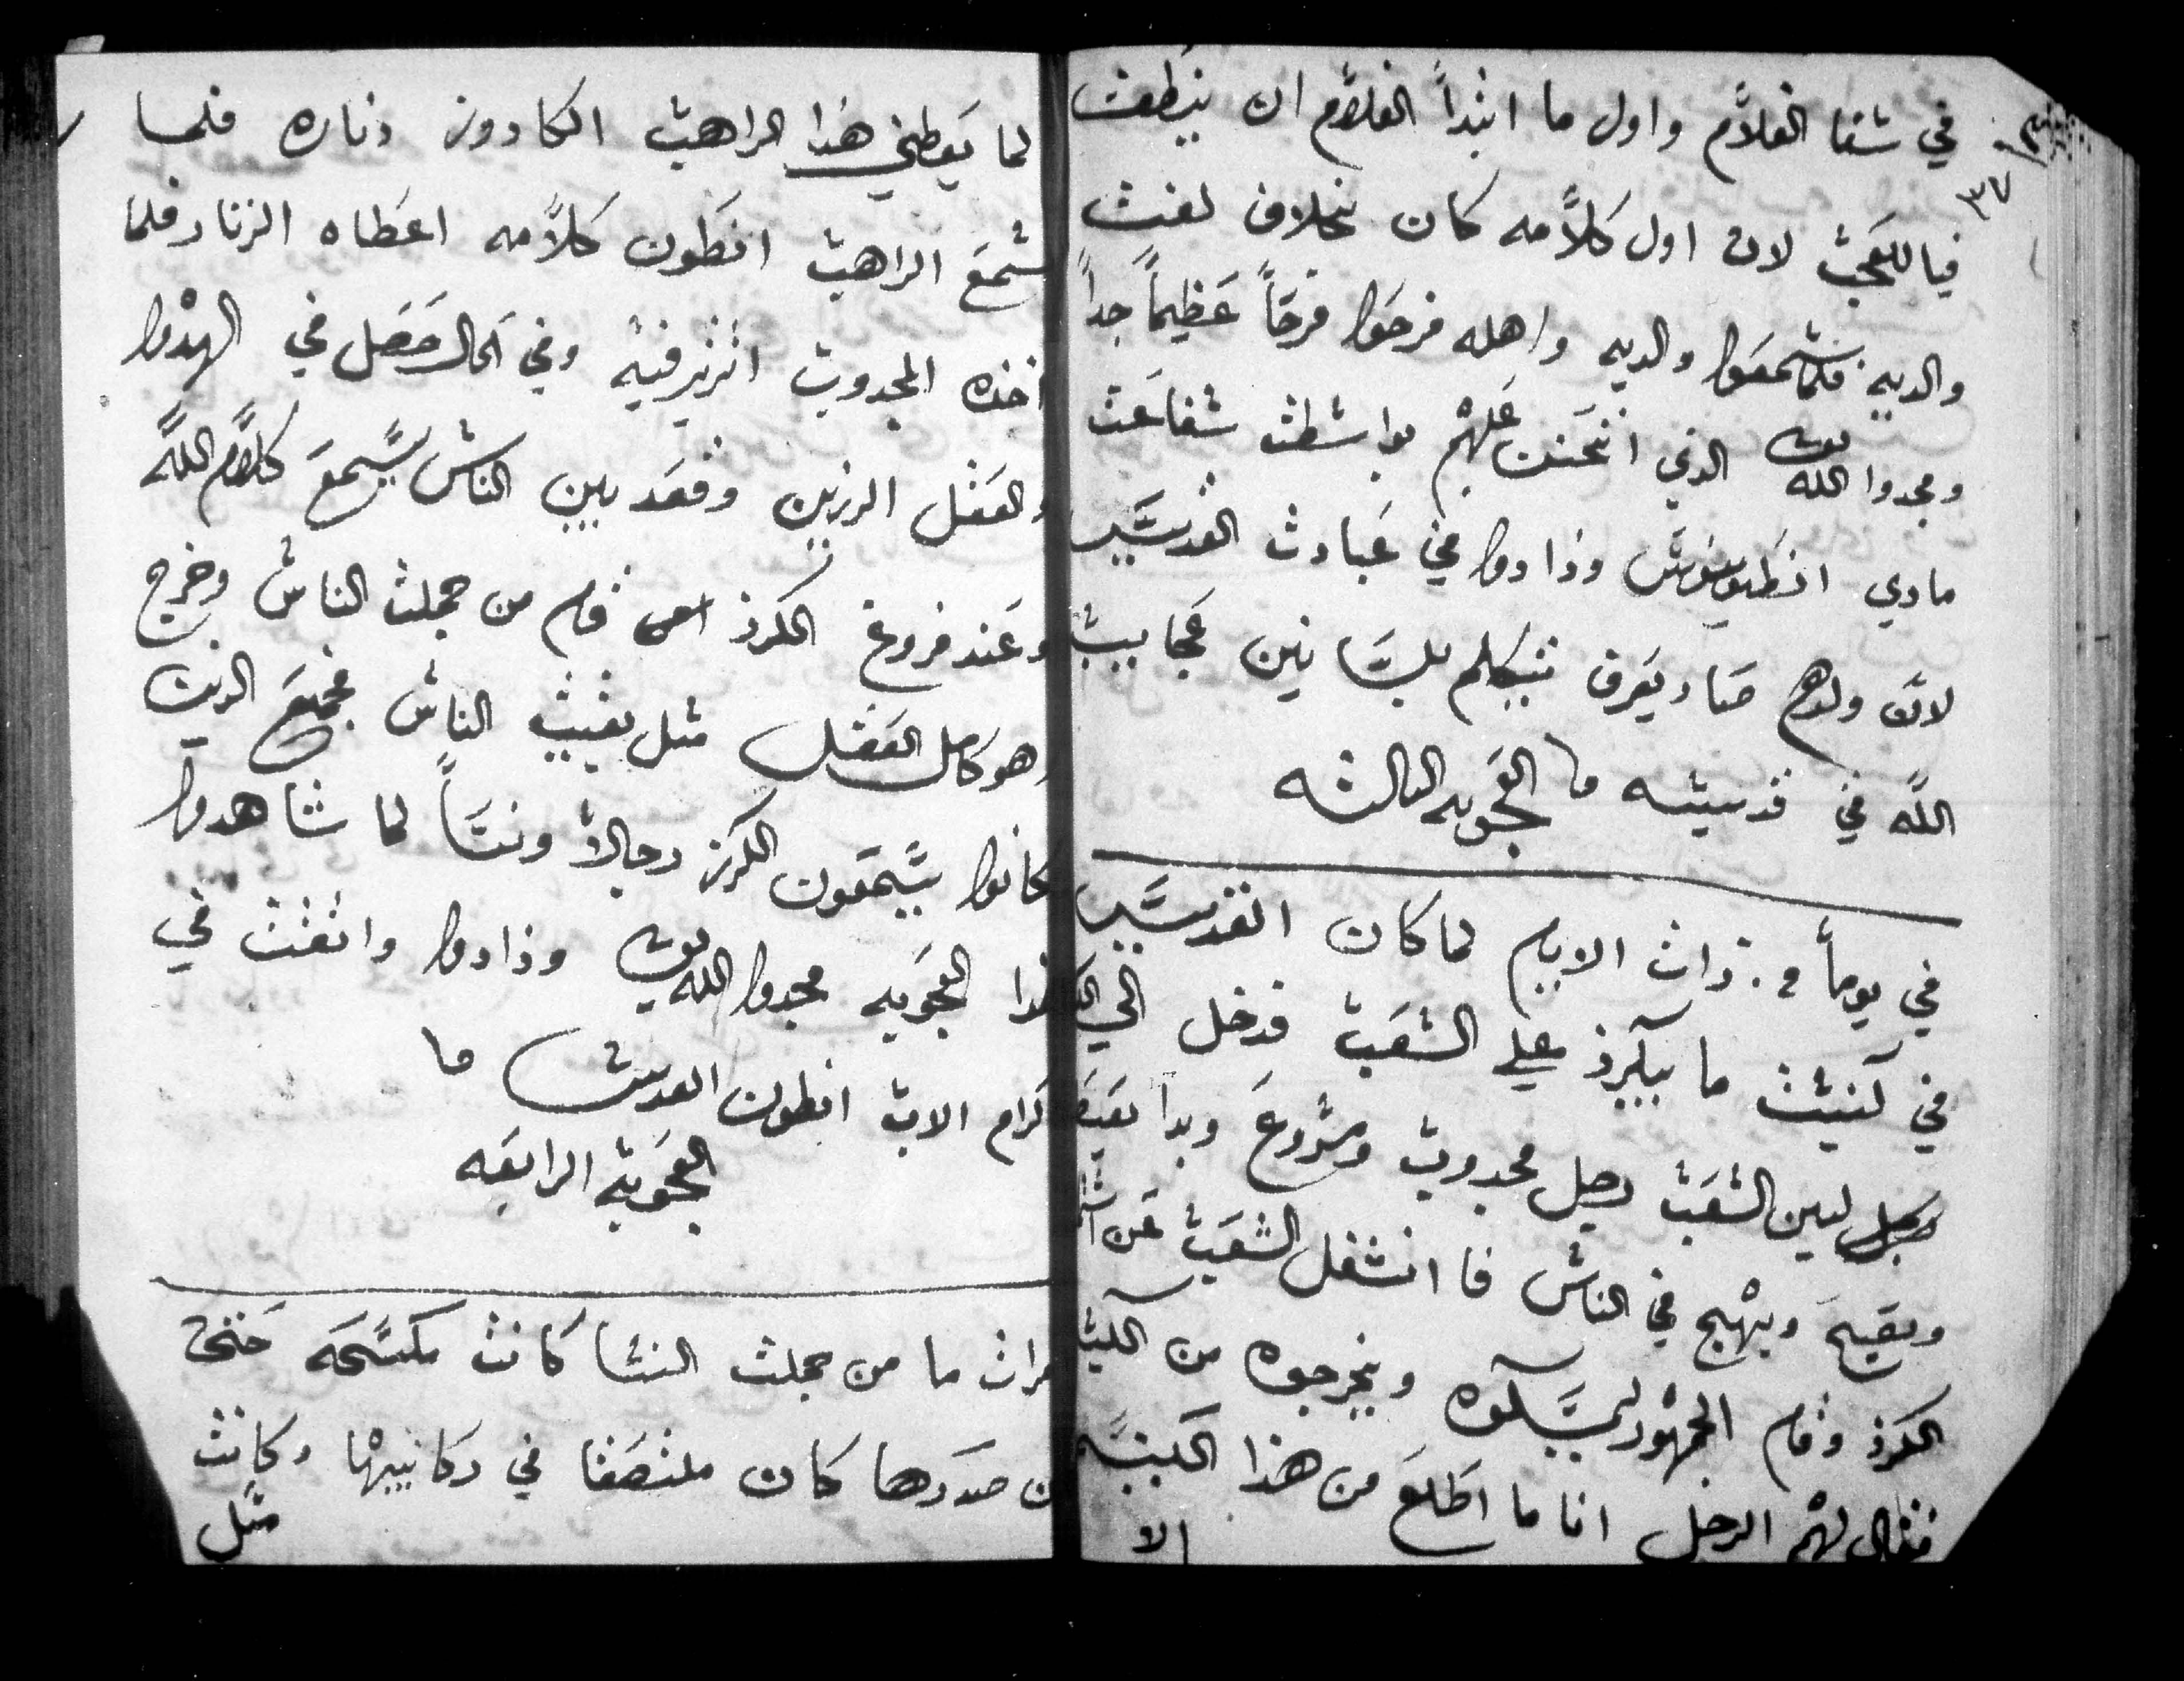 ٣٧
في شفا الغلام واول ما ابتدأ الغلام ان ينطفت
فيا للعجب لان اول كلامه كان بخلاف لغت
والديه فلما سمعوا والديه واهله فرحوا فرحاً عظيماً جداً
ومجدوا الله الذي اتحنن عليهم بواسطت شفاعت
مادي انطونيوس وزادوا في عبادت القديس
لان ولدهم صار يعرف يتكلم بلسانين عجايب
الله في قديسه العجوبه التالته
في يوماً ذات الايام لما كان القديس
في كنيست ما بيكرز على الشعب فدخل الي
بين الشعب رجل مجدوب وشروع وبدا
ويصيح ويهيج في الناس فا انشغل الشعب عن
الكرز وقام الجمهور ليمسكوه ويخرجوه من
فقال لهم الرجل انا ما اطلع من هذا الكنيسه
الا
لما يعطيني هذا الراهب الكادور زناره فلما
سمع الراهب انطون كلامه اعطاه الزنار فلما
اخده المجدوب اتزنر فيه وفي الحال حصل في الهدوا
والعقل الرزين وقعد بين الناس يسمع كلام الله
وعند فروغ الكرز قام من جملت الناس وخرج
وهو كامل العقل مثل بقيت الناس فجميع الدين
كانوا يسمعون الكرز رجالاً ونساً لما شاهدوا
هدا العجوبه مجدوا الله وزادوا واتقنت في
كرام الاب انطون القديس
العجوبة الرابعه
مرات ما من جملت النسا كانت مكسحه حتى
ان صدرها كان ملتصقا في ركابيها وكانت
مثل